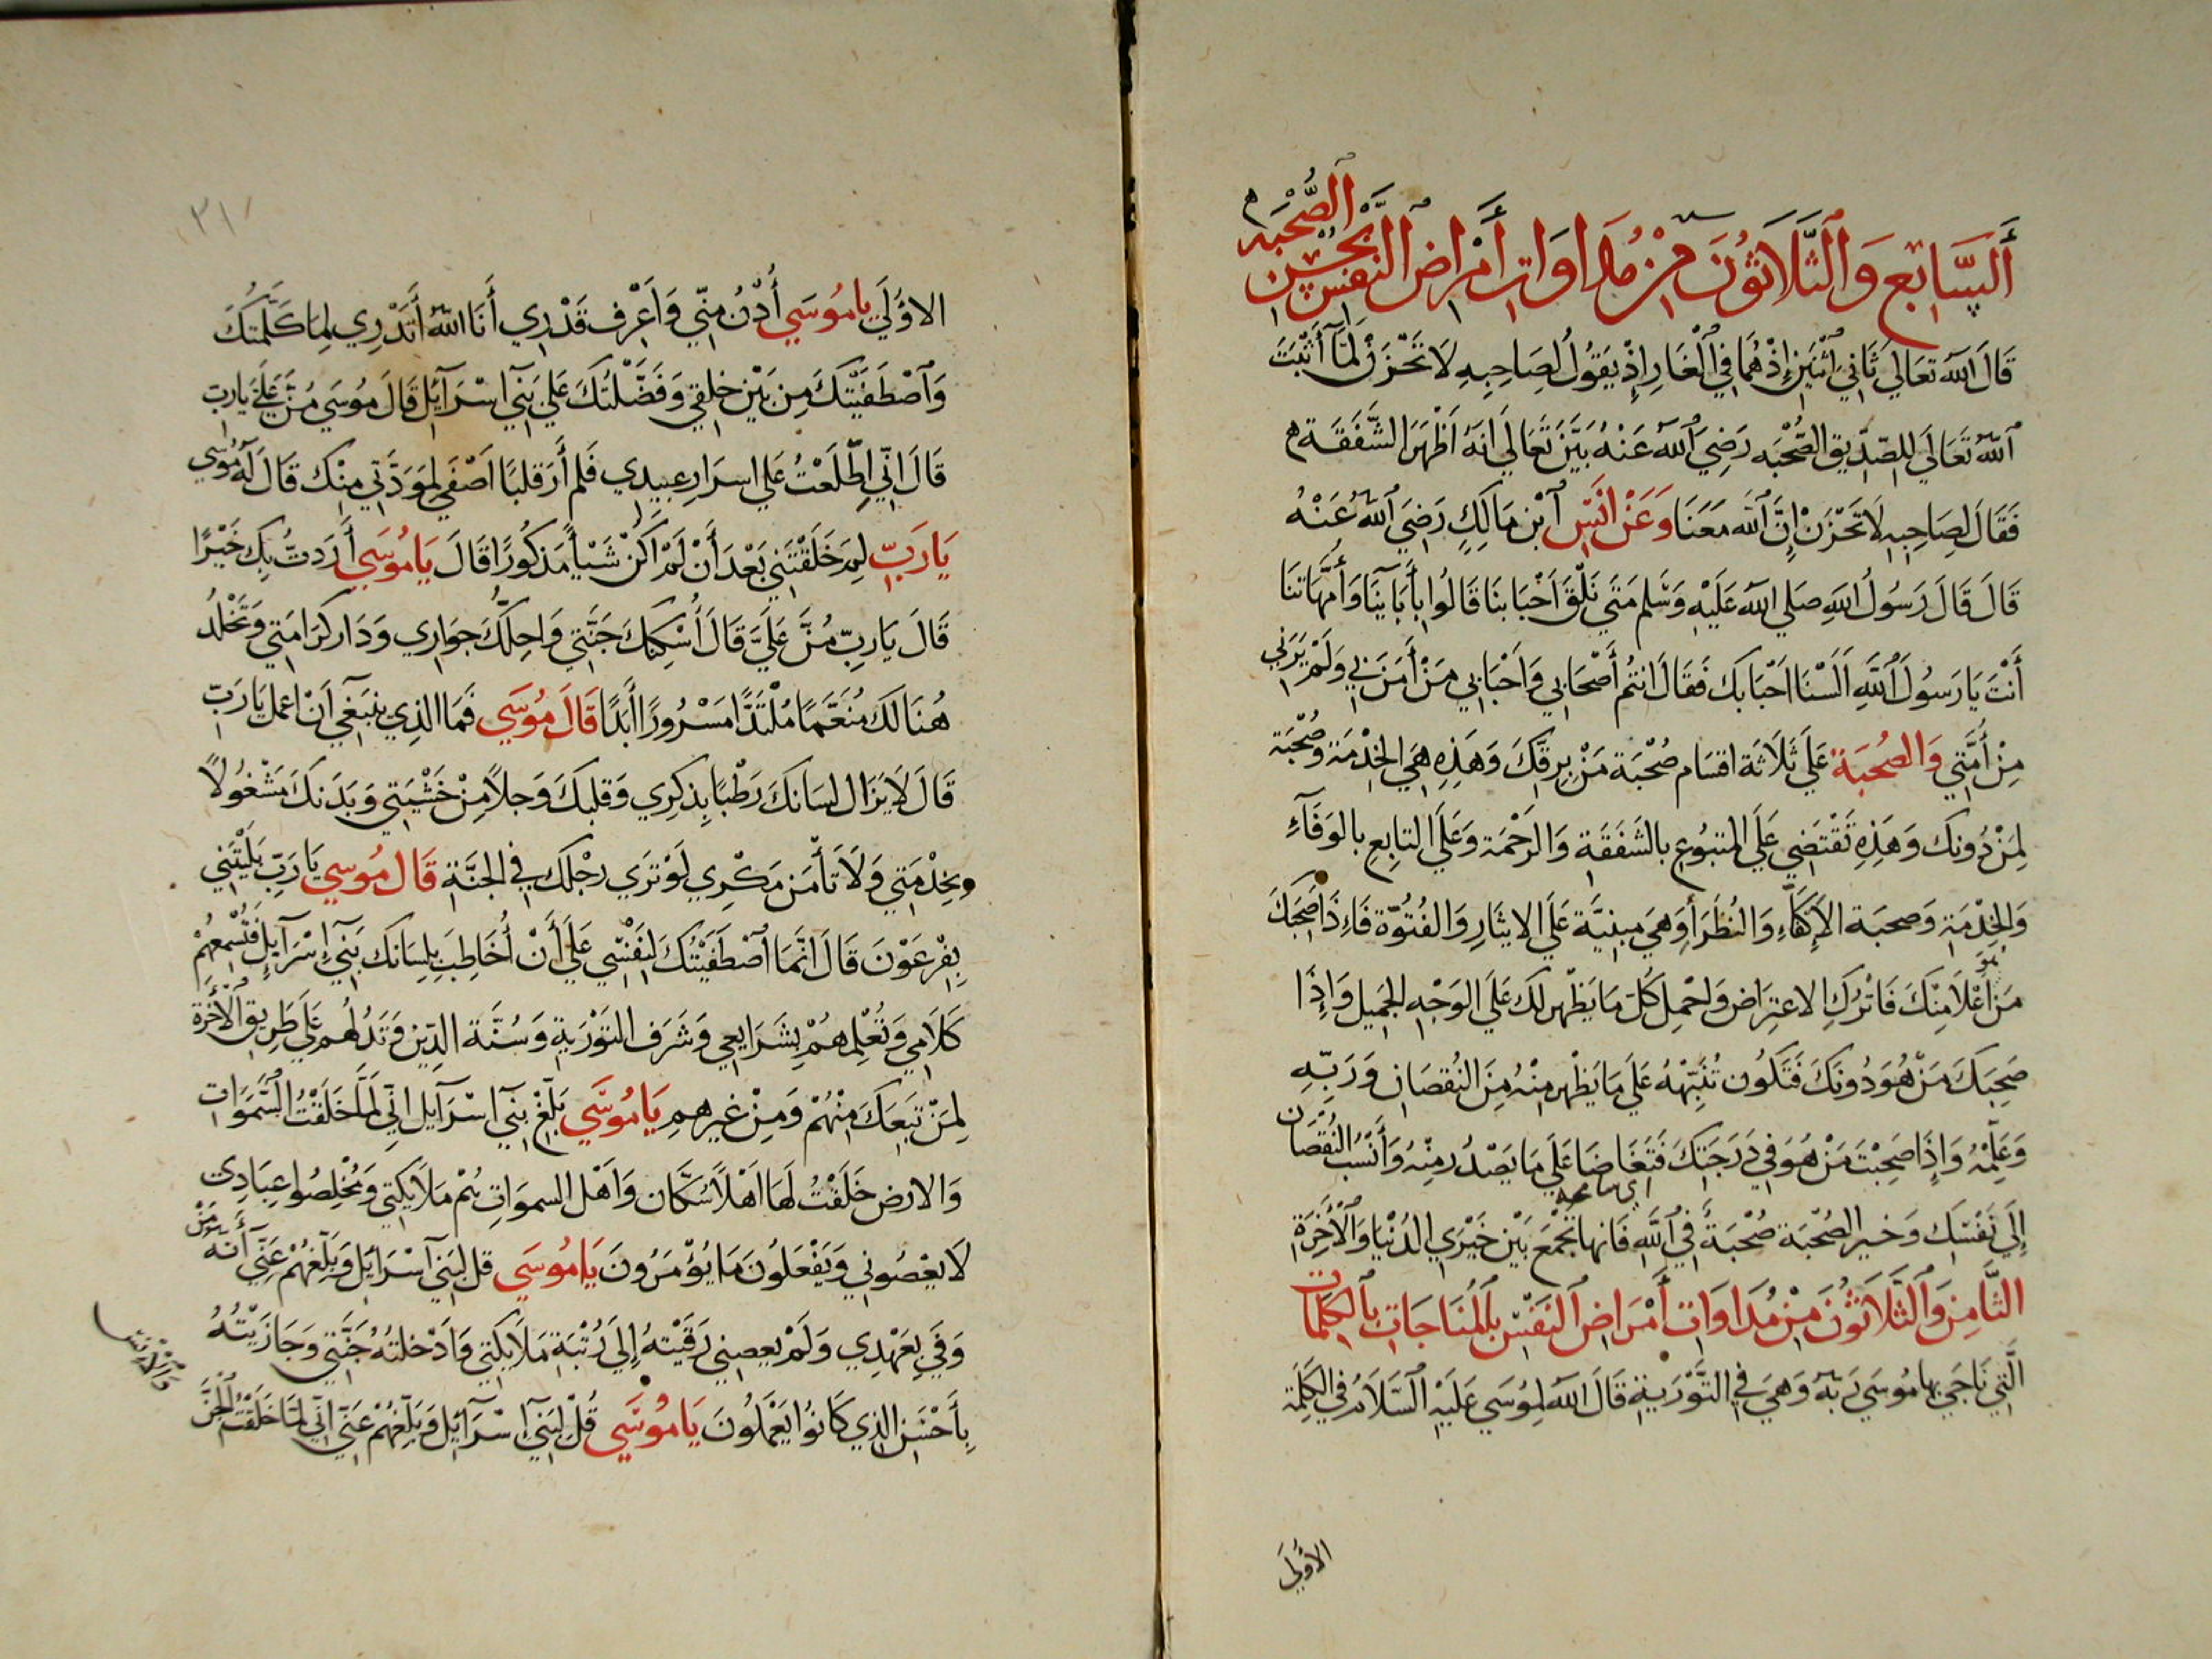 أَلسَّابِعُ وَالثَّلَاثُونَ مِنْ مُدَاوَاتِ أَمْرَاضِ النَّفْسِ بِحُسْنِ الصُّحْبَةِ
قَالَ اللهُ تَعَالَى ثَانِيَ اثْنَيْنِ إِذْ هُمَا فِي الْغَارِ إِذْ يَقُولُ لِصَاحِبِهِ لَا تَحْزَنْ لَمَّا أَثْبَتَ
اللهُ تَعَالَى لِلصِّدِّيقِ الصُّحْبَه رَضِيَ اللهُ عَنْهُ بَيَّنَ تَعَالَى أَنَّهُ أَظْهَرَ الشَّفَقَة
فَقَالَ لِصَاحِبِهِ لَا تَحْزَنْ إِنَّ اللهَ مَعَنَا وَعَنْ أَنَسِ ابْنِ مَالِكٍ رَضِيَ اللهُ عَنْهُ
قَالَ قَالَ رَسُولُ اللهِ صَلَى اللهُ عَلَيْهِ وَسَّلم مَتَى نَلْقَ أَحْبَابنَا قَالُوا بِأَبَآيِنَا وَأُمَّهَاتنَا
أَنْتَ يَا رَسُولَ اللهِ أَلَسْنَا أَحْبَابَكَ فَقَالَ انْتُم أَصْحَابِي وَأَحْبَابِي مَنْ أَمَنَ بِي وَلَمْ يَرَنِي
مِنْ أُمَّتِي وَالصُحبَة عَلَى ثَلَاثَة اقسَام صُحْبَة مَنْ بِرقكَ وَهَذِهِ هِيَ الخِدْمَة وَصُحْبَة
لِمَنْ دُونك وَهَذِهِ تَقْتَضِي عَلَى المتبُوعِ بالشَفَقَة وَالرَحْمَة وَعَلَى التابِع بالوَفَآءِ
وَالخِدْمَةِ وَصحبَة الأكفَاءِ وَالنُظَرَاءِ وَهيَ مبنيَّة عَلَى الايثَارِ وَالفُتُوّة فَإِذَا صَحِبَكَ
مَنْ هُوَ أَعْلَا مِنْكَ فَاتْرُكِ الاعتِرَاض وَاحْمِل كُلّ مَا يَظْهر لكَ عَلَى الوَجْهِ الجَمِيل وَإِذَا
صَحِبَكَ مَنْ هُوَ دُونكَ فَتَكُون تُنَبِّهُهُ عَلَى مَا يَظْهر مِنْهُ مِنَ النُقصَانِ وَرَبِّهِ
وَعَلِّمْهُ وَإِذَا صَحِبْتَ مَنْ هُوَ فِي دَرَجَتِكَ فَتَغَاضَا عَلَى مَا يَصْدُر مِنْهُ وَأَنْسُبِ النُقْصَان
إِلَى نَفْسِك وَخَير الصُحْبَة صُحْبَةً فِي اللهِ فَانهَا تجْمَع بَيْنَ خَيْرَيِ الدُنْيَا وَالْأَخِرَة
الثَّامِن وَالثَّلَاثُونَ مِنْ مُدَاوَاتِ أَمْرَاضِ النَفْسِ بِالْمُنَاجَاتِ بِالكَلِمَات
الَّتِي نَاجَى بهَا مُوسَى رَبهُ وَهيَ فِي التَّوْرَيةِ قَالَ اللهُ لِمُوسَى عَلَيْهِ السَّلَامُ فِي الكَلِمَة
الأولَى
٣١
الاؤُلَى يَا مُوسَى أُدْنُ مِنِّي وَاعْرِف قَدْرِي أَنَا اللهُ أَتَدْرِي لِمَا كَلَّمْتُكَ
وَاصْطَفَيْتكَ مِن بَيْن خلقِي وَفَضَّلْتُكَ عَلَى بَنِي اسْرَآئِل قَالَ مُوسَى مُنَّ عَلَيَّ يَارَبِّ
قَالَ انِّي اِطَّلَعْتُ عَلَى اسرَارِ عبيدِي فَلم أَرَ قلبًا اَصْفَى لِمَوَدَّتِي مِنْك قَالَ لَهُ مُوسَى
يَا رَبِّ لِمَ خَلَقْتَنِي بَعْدَ أَنْ لَمْ اكُنْ شَيْأً مَذكُورًا قَالَ يَا مُوسَى أَرَدتُّ بِك خَيْرًا
قَالَ يَا رَبِّ مُنَّ عَلَيَّ قَالَ أُسْكِنكَ جَنَّتِي وَاحِلُّكَ جوَارِي وَدَار كَرَامَتِي وَتَخْلُدُ
هُنَالكَ مُنَعَّمًا مُلْتَذًّا مَسْرُورًا أَبَدًا قَالَ مُوسَى فَمَا الذِي ينبَغِي اَنْ اعمل يَا رَبِّ
قَالَ لَا يَزَال لسَانكَ رَطْبًا بِذِكرِي وَقلبكَ وَجلًا مِنْ خَشْيَتِي وَبَدَنكَ مَشْغُولًا
وبخِدْمَتِي وَلَا تَأمَن مَكْرِي لَوْ تَرَى رجْلكَ فِي الجَنَّة قَالَ مُوسَى يَا رَبِّ بَلَيْتَنِي
بِفِرْعَوْنَ قَالَ انَّمَا اصْطَفَيْتُكَ لِنَفْسِي عَلَى أَنْ أُخَاطِبَ بِلِسَانكَ بَنِي إِسْرَآيِل فَتُسْمِعهُمْ
كَلَامِي وَتُعْلِمهُمْ بِشَرَايعِي وَشَرَف التَوْرَيةِ وَسُنَّة الدِّينِ وَتَدُلهُم عَلَى طَرِيقِ الْأَخِرَة
لِمَنْ تَبَعَكَ مِنْهُمْ وَمِنْ غيرهم يَا مُوسَى بَلِّغْ بني اسْرَآيل انِّي لَمَّا خَلَقْتُ السَّمَوَات
وَالارض خَلَقْتُ لَهَا اَهْلًا سُكَّان وَاَهْل السموَاتِ هُم مَلَايكَتِي وَمُخْلِصُوا عِبَادِي
لَا يعْصُونِي وَيَفْعَلُونَ مَا يُؤْمَرُونَ يَا مُوسَى قل لِبَنِي اسْرَائِل وَبَلِّغهُمْ عَنِّي أَنَّهُ مَنْ
وَفَى بِعَهْدِي وَلَمْ يعصِنِي رَقَيْتهُ إِلَى رُتْبَةِ مَلَايكَتِي وَادْخلتُهُ جَنَّتِي وَجَازَيْتُهُ
بِأَحْسَنِ الذِي كَانُوا يَعْمَلُونَ يَا مُوسَى قُلْ لِبَنِي اسْرَآئِل وَبَلِّغهُمْ عَنِّي انِّي لَمَّا خَلَقْتُ الْجِنَّ
وَالْأِنْسَ